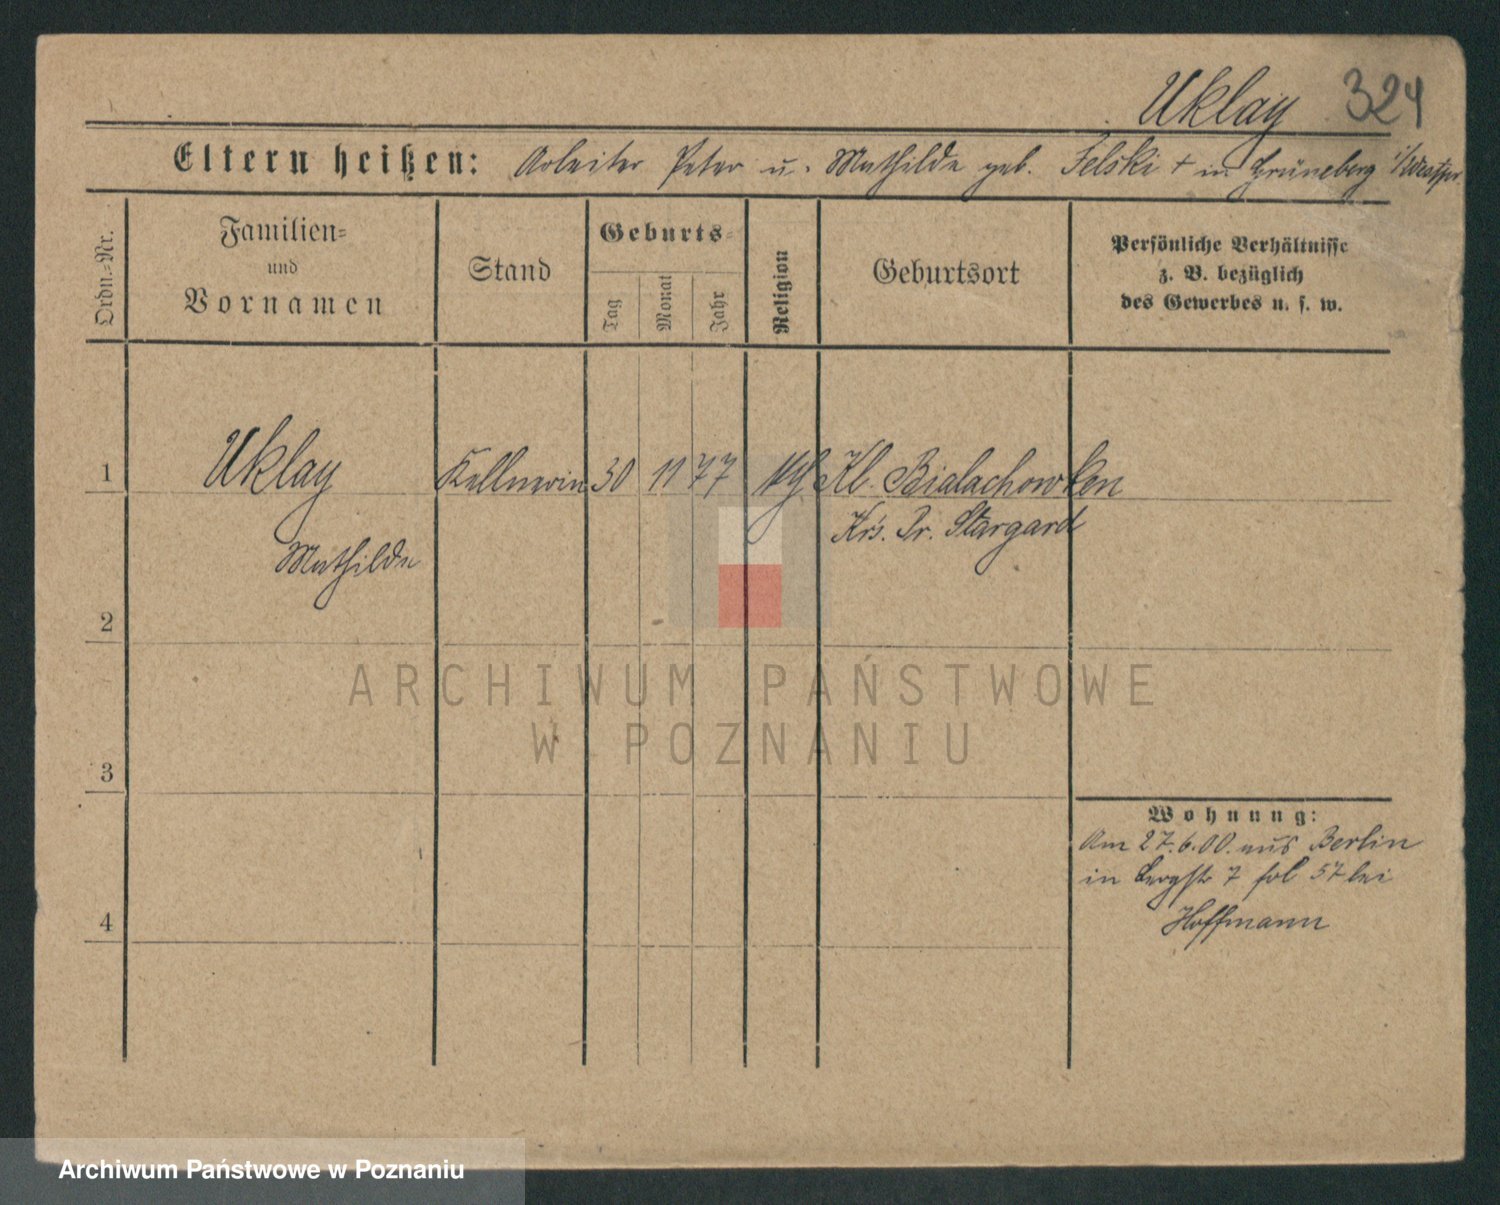 Uklay 324
Eltern heißen: Arbeiter Peter u. Mathilde geb. Felski + in Grüneberg i/Westpr.
Ordn.-Nr.
Familien-
und
Vornamen
Stand
Geburts-
Tag
Monat
Jahr
Religion
Geburtsort
Persönliche Verhältnisse
z. B. bezüglich
des Gewerbes u. s. w.
1 Uklay Kellnerin 30 11 77 Kl. Bialachowken
Krs. Pr. Stargard
Mathilde
2
ARCHIWUM PAŃSTWOWE
W POZNANIU
3
Wohnung:
Am 27.6.00. aus Berlin
in Bergstr 7 fol 57 bei
4
Hoffmann
Archiwum Państwowe w Poznaniu